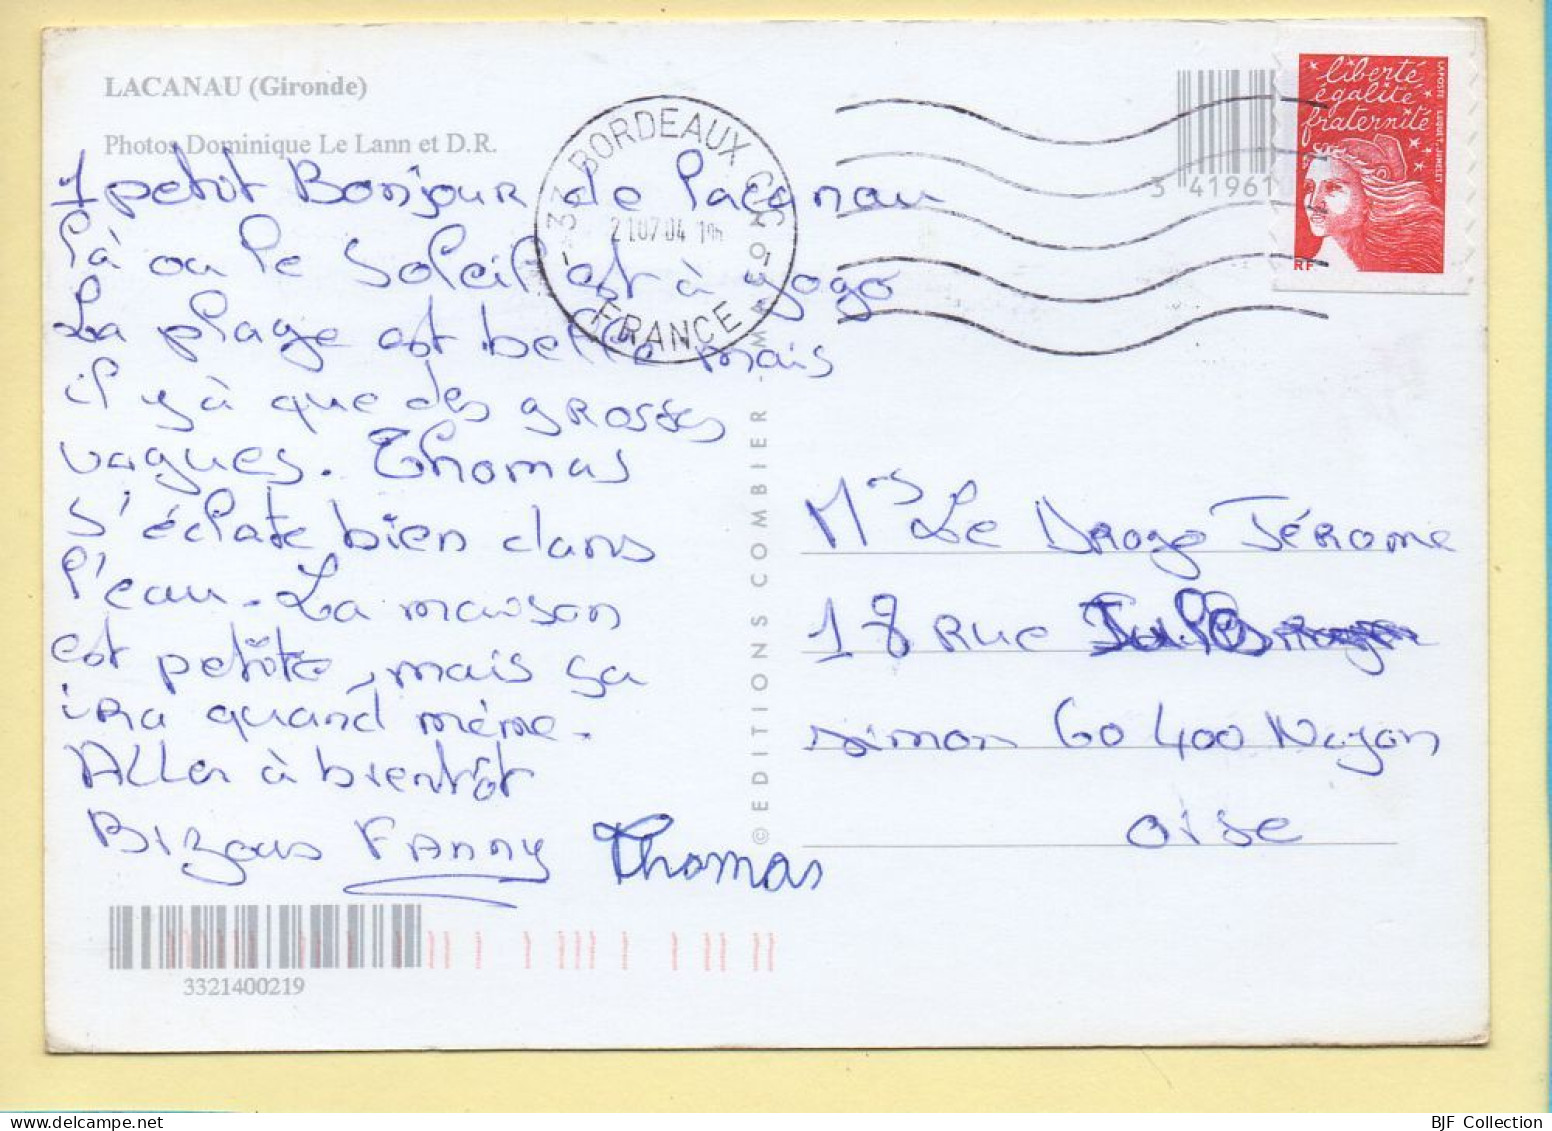 LACANAU (Gironde)
Photos Dominique Le Lann et D.R.
1 petit Bonjour de Lacanau
là ou le soleil est à gogo
La plage est belle mais
il y à que des grosses
vagues. Thomas
s'éclate bien dans
l'eau. La maison
est petite, mais sa
ira quand même.
Aller à bientôt
Bizous Fanny Thomas
3321400219
33 BORDEAUX
21 07 04
FRANCE
© EDITIONS COMBIER MACON
3 41961
liberté
égalité
fraternité
RF
LAPOSTE LUQUET, JUMELET
Mrs Le Drogo Jérome
18 Rue Jules
simon 60400 Noyon
oise
BJF Collection